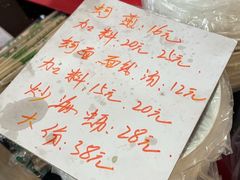 蚵煎:16元
加料20元 25元.
蚵面面线汤:12元
加料:15元 20元
炒海蛎:28元
大份:38元